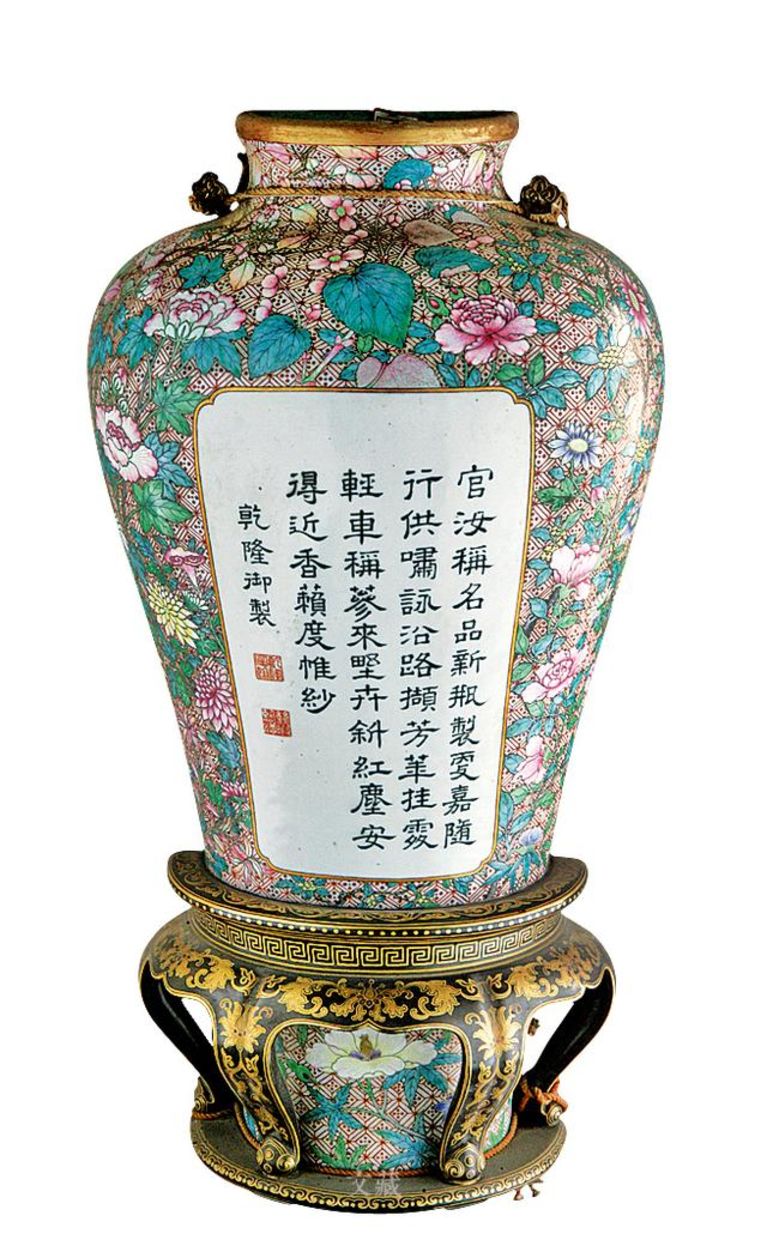 官汝稱名品新瓶製更嘉隨
行供嘯詠沿路擷芳華挂處
輊車稱簪來野卉斜紅塵安
得近香籟度惟紗
乾隆御製
文藏